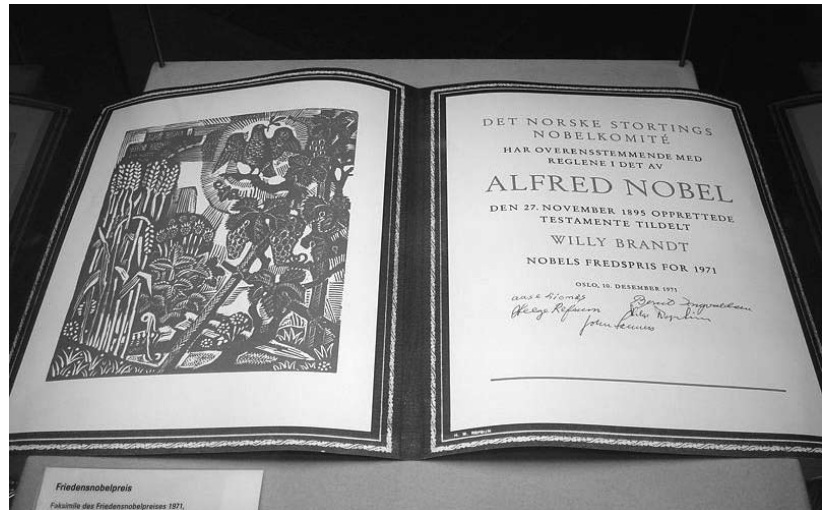 DET NORSKE STORTINGS
NOBELKOMITÉ
HAR OVERENSSTEMMENDE MED
REGLENE I DET AV
ALFRED NOBEL
DEN 27. NOVEMBER 1895 OPPRETTEDE
TESTAMENTE TILDELT
WILLY BRANDT
NOBELS FREDSPRIS FOR 1971
OSLO, 10. DESEMBER 1971
Aase Lionæs Bernt Ingvaldsen
Helge Refsum
John Sanness
Friedensnobelpreis
Faksimile des Friedensnobelpreises 1971,